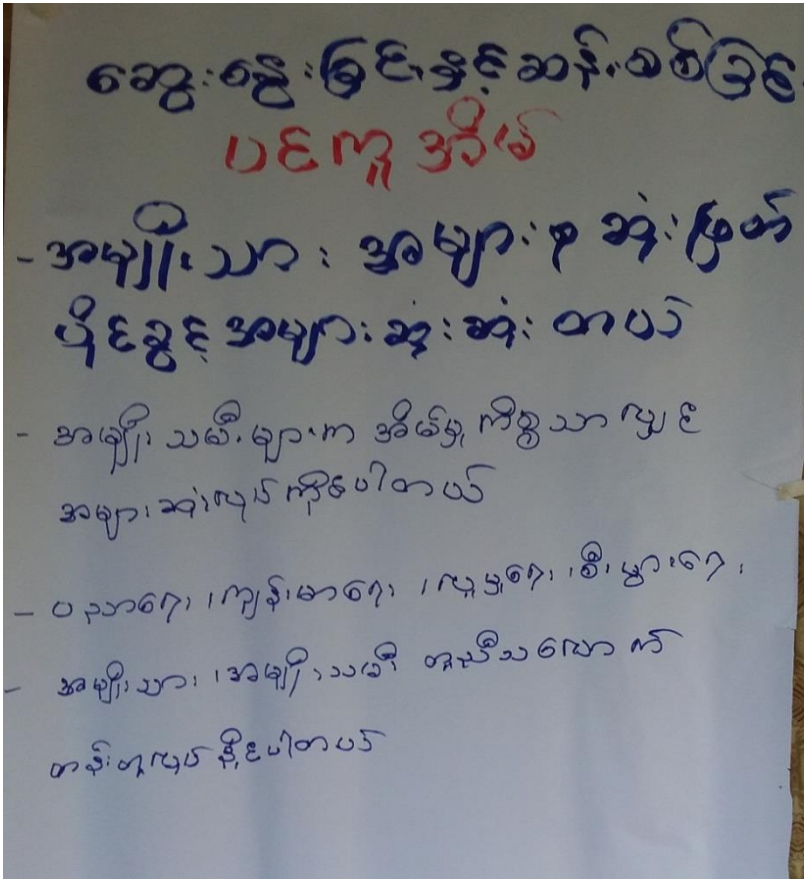 ဆွေးနွေးခြင်းနှင့်ဆန်းစစ်ခြင်း
ပင်ကူအိမ်
- အမျိုးသား အများစု ဆုံးဖြတ်
ပိုင်ခွင့် အများဆုံးဆုံး တယ်
- အမျိုးသမီးများက အိမ်မှုကိစ္စသာလျှင်
အများဆုံးလုပ်ကိုင်ပေါတယ်
- ပညာရေး ၊ကျန်းမာရေး ၊လူမှုရေး ၊စီးပွားရေး
- အမျိုးသား ၊အမျိုးသမီး တူညီသလောက်
တန်းတူလုပ်နိုင်ပါတယ်